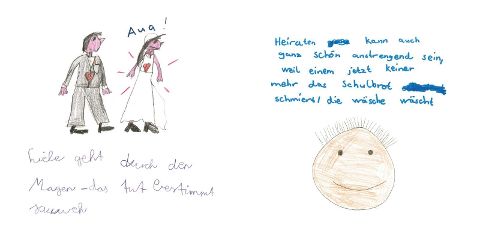 Aua!
Liebe geht durch den
Magen - das tut bestimmt
Heiraten kann auch
ganz schön anstrengend sein,
weil einem jetzt keiner
mehr das Schulbrot
schmiert/ die wäsche wäscht